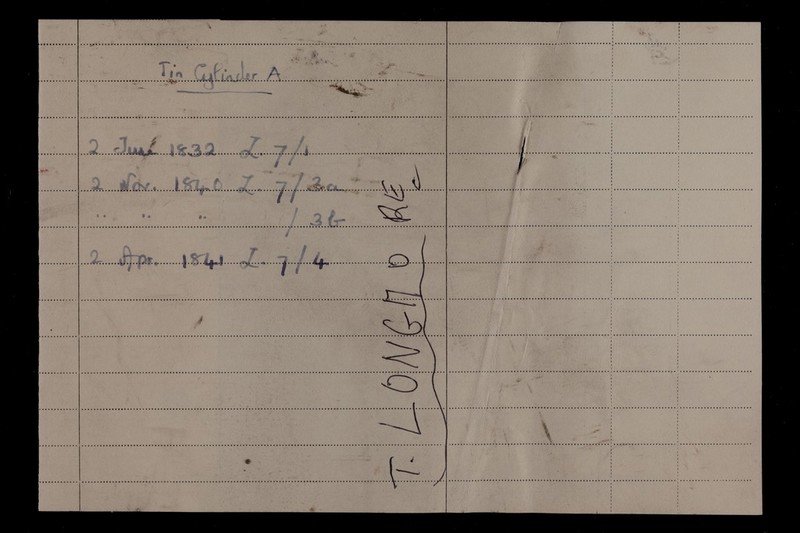 Tin Cylinder A
2 June 1832 Z 7/1
2 Nov. 1840 Z. 7/3a
" " " /3b
2 Apr. 1841 Z. 7/4
T. LONGMORE